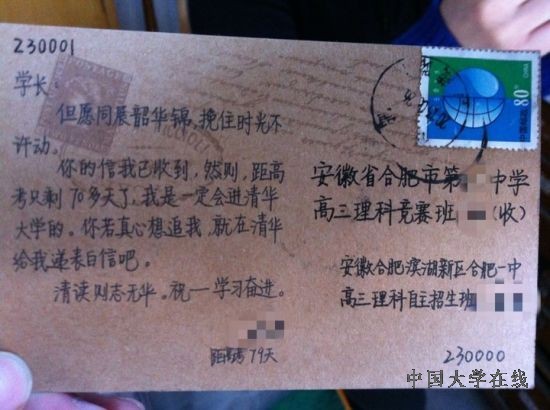 230001
学长:
但愿同展韶华锦,挽住时光不
许动。
你的信我已收到,然则,距高
考只剩70多天了,我是一定会进清华
大学的。你若真心想追我,就在清华
给我递表白信吧。
清读则志无华。祝——学习奋进。
距高考79天
80分
安徽省合肥市第 中学
高三理科竞赛班 (收)
安徽合肥滨湖新区合肥一中
高三理科自主招生班
230000
中国大学在线